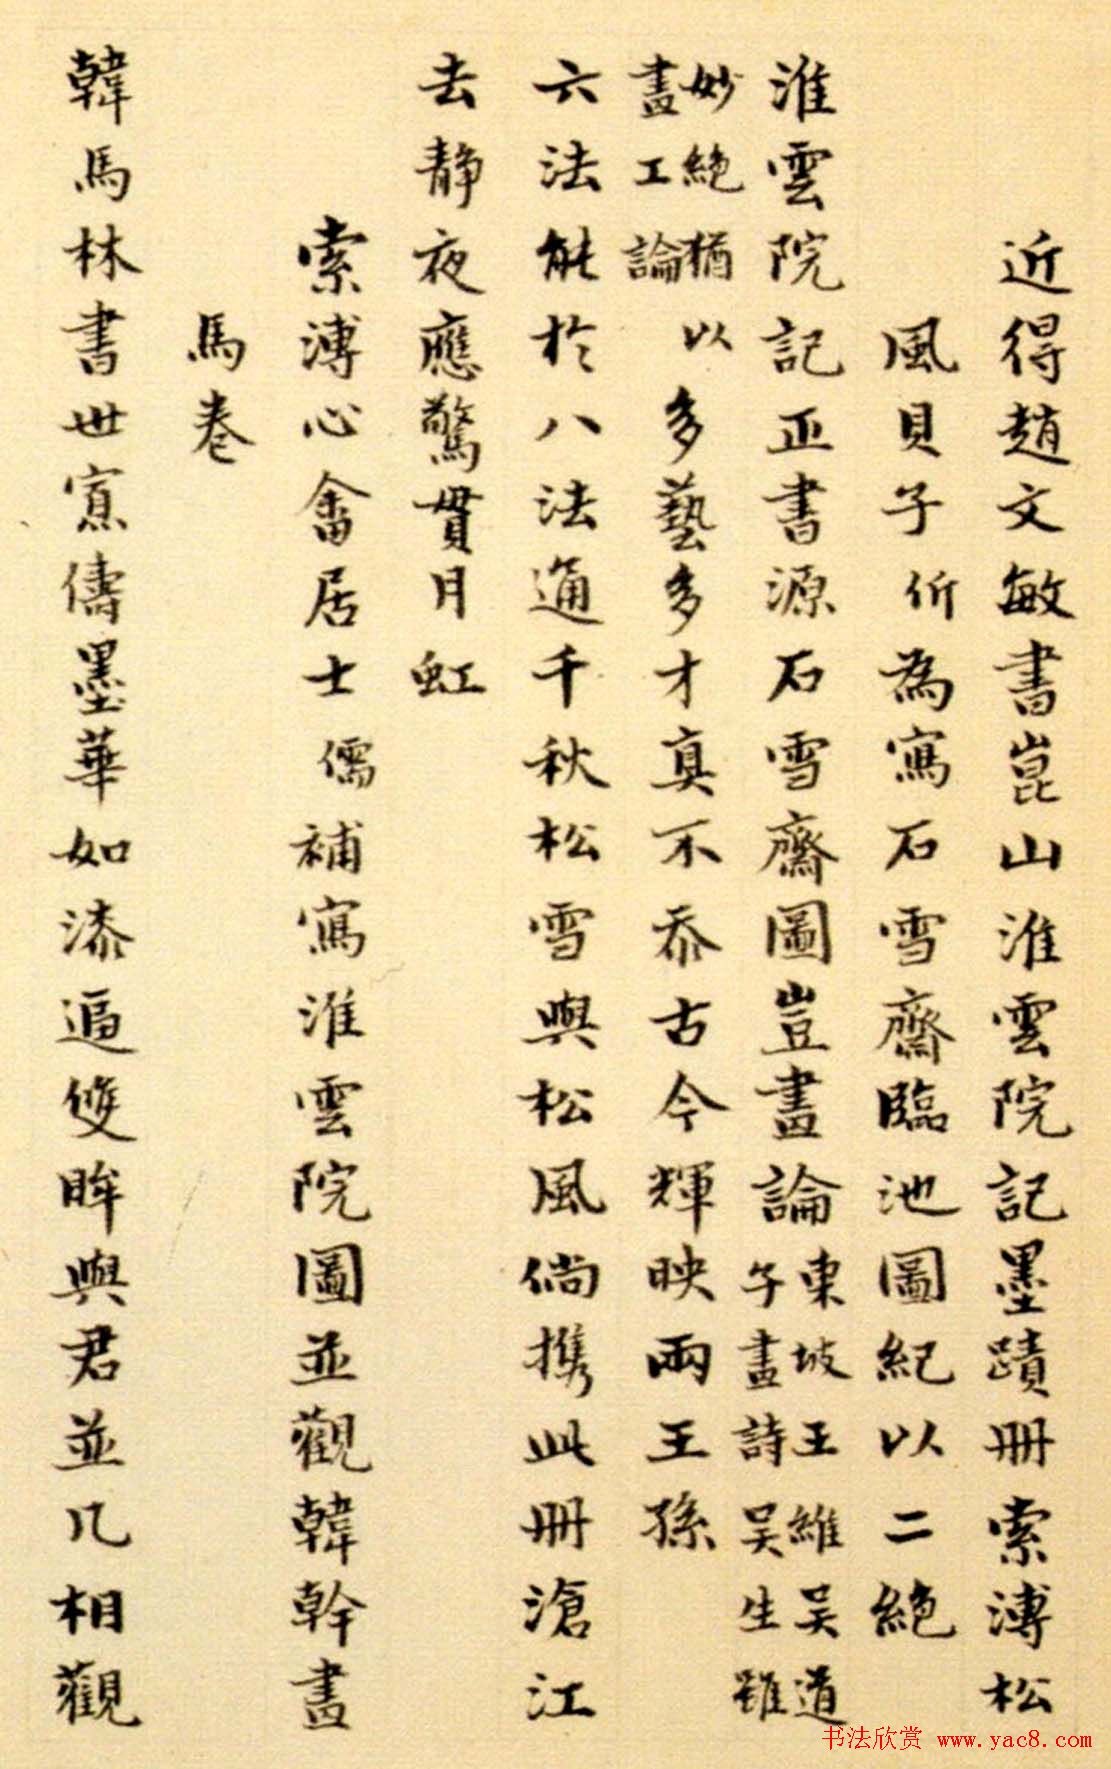 近得趙文敏書崑山淮雲院記墨蹟冊索溥松
風貝子伒為寫石雪齋臨池圖紀以二絕
淮雲院記正書源石雪齋圖豈畫論
東坡王維吳道
子畫詩吳生雖
妙絕猶以
畫工論
多藝多才真不忝古今輝映兩王孫
六法能於八法通千秋松雪與松風倘携此冊滄江
去靜夜應驚貫月虹
索溥心畬居士儒補寫淮雲院圖並觀韓幹畫
馬卷
韓馬林書世寡儔墨華如漆逼雙眸與君並几相觀
书法欣赏 www.yac8.com